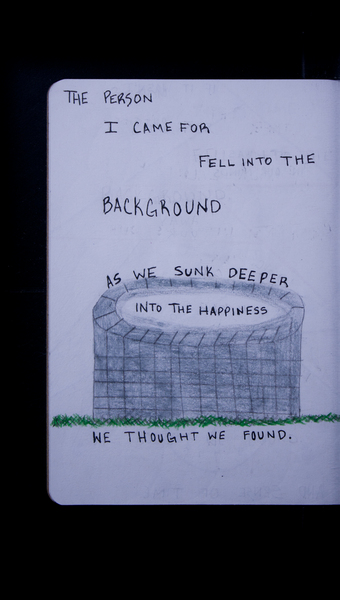 THE PERSON
I CAME FOR
FELL INTO THE
BACKGROUND
AS WE SUNK DEEPER
INTO THE HAPPINESS
WE THOUGHT WE FOUND.